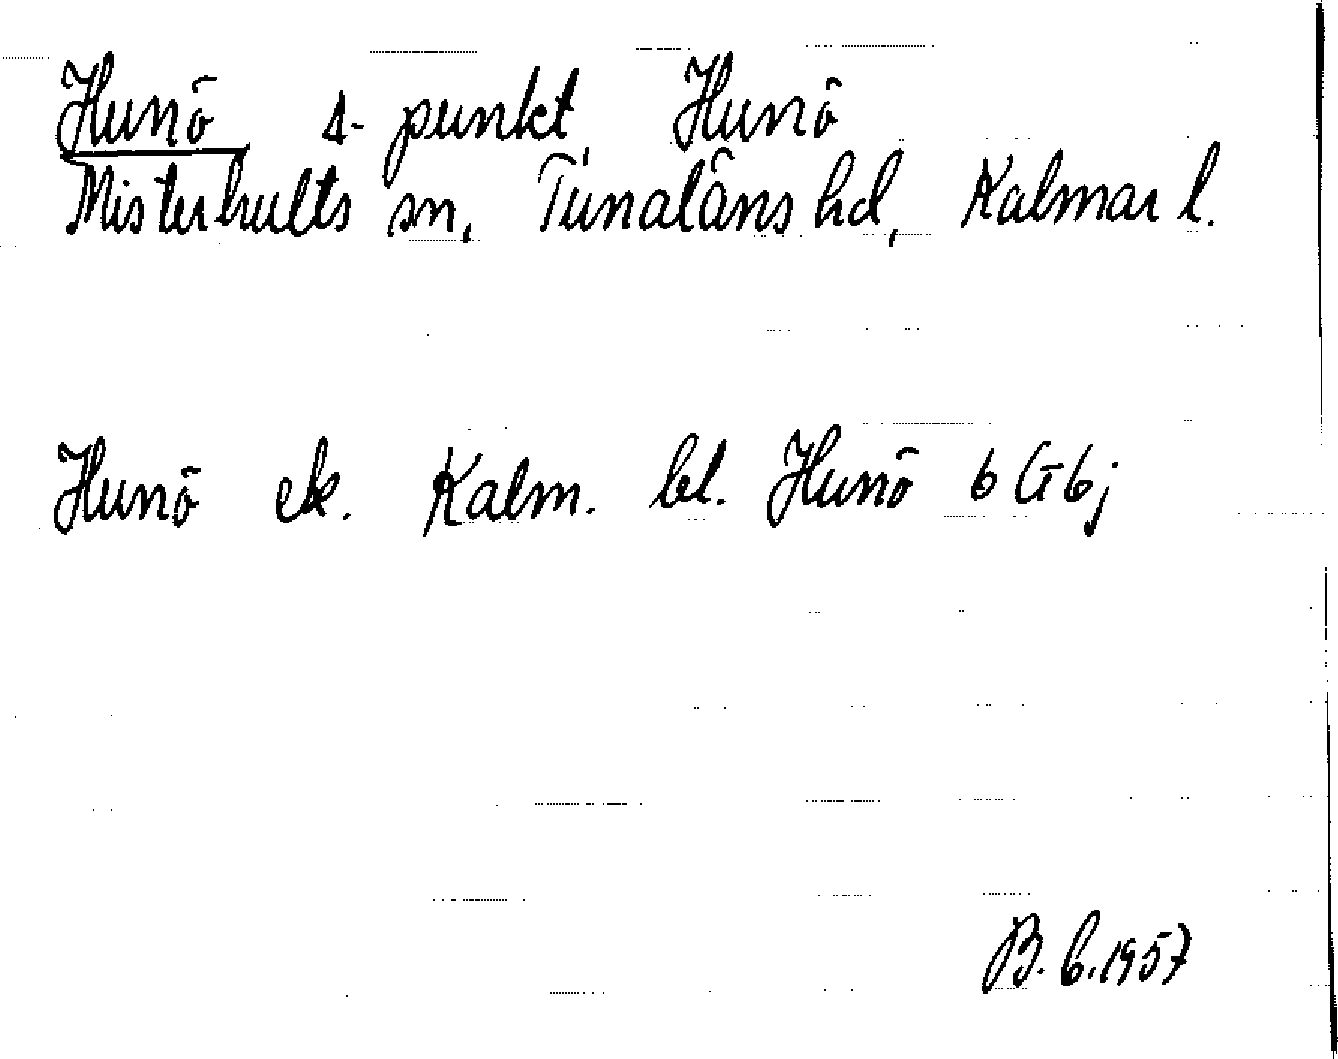 Hunö △-punkt, Hunö
Misterhults sn, Tunaläns hd, Kalmar l.
Hunö ek. Kalm. bl. Hunö 6G6j
B. b. 1957